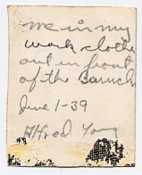 me in my
work clothes
out in front
of the Baruch
June 1-39
Alfred Young